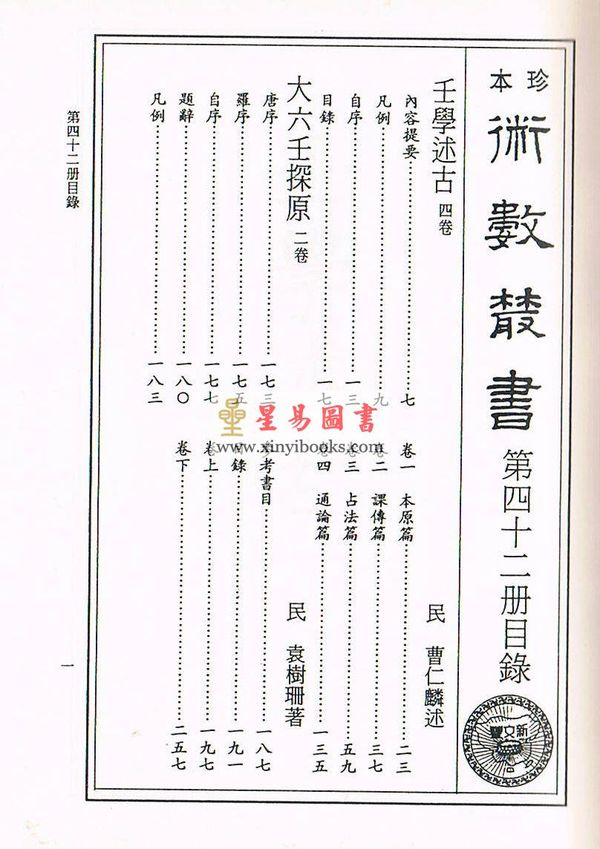 珍本
術數叢書 第四十二册目錄
新文豐
壬學述古 四卷 民 曹仁麟述
內容提要……七 卷一 本原篇……二三
凡例……九 卷二 課傳篇……三七
自序……一三 卷三 占法篇……五九
目錄……一七 卷四 通論篇……一三五
大六壬探原 二卷 民 袁樹珊著
唐序……一七三 參考書目……一八七
羅序……一七五 目錄……一九一
自序……一七七 卷上……一九七
題辭……一八〇 卷下……二五七
凡例……一八三
第四十二册目錄 一
星易圖書
www.xinyibooks.com